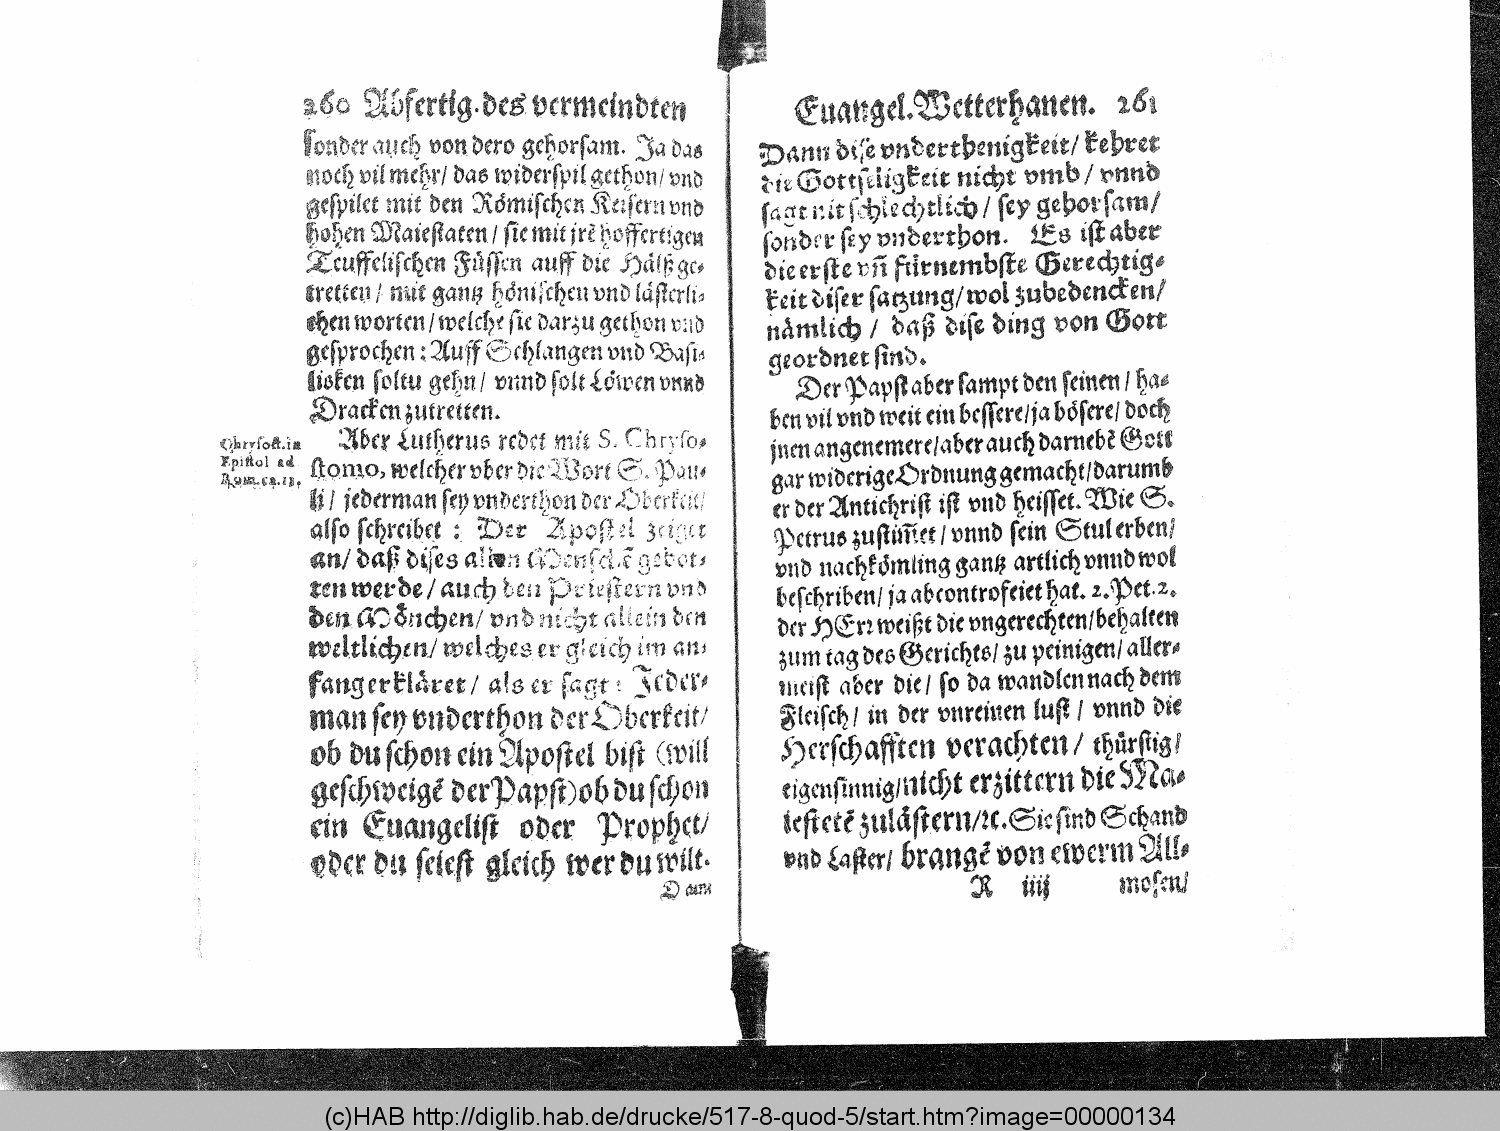 260 Abfertig. des vermeindten
sonder auch von dero gehorsam. Ja das
noch vil mehr/ das widerspil gethon/ vnd
gespilet mit den Römischen Keisern vnd
hohen Maiestaten / sie mit jrẽ hoffertigen
Teuffelischen Füssen auff die Hälß ge-
tretten / mit gantz hönischen vnd lästerli-
chen worten / welche sie darzu gethon vnd
gesprochen : Auff Schlangen vnd Basi-
lisken soltu gehn / vnnd solt Löwen vnnd
Dracken zutretten.
Chrysost. in
Epistol ad
Rom. ca. 13.
Aber Lutherus redet mit S. Chryso-
stomo, welcher vber die Wort S. Pau-
li / jederman sey vnderthon der Oberkeit/
also schreibet : Der Apostel zeiget
an/ daß dises allen Menschẽ gebot-
ten werde / auch den Priestern vnd
den Mönchen/ vnd nicht allein den
weltlichen/ welches er gleich im an-
fang erkläret / als er sagt : Jeder-
man sey vnderthon der Oberkeit/
ob du schon ein Apostel bist (will
geschweigẽ der Papst) ob du schon
ein Euangelist oder Prophet/
oder du seiest gleich wer du wilt.
Dann
Euangel. Wetterhanen. 261
Dann dise vnderthenigkeit/ kehret
die Gottseligkeit nicht vmb / vnnd
sagt nit schlechtlich / sey gehorsam/
sonder sey vnderthon. Es ist aber
die erste vñ fürnembste Gerechtig-
keit diser satzung/ wol zubedencken/
nämlich / daß dise ding von Gott
geordnet sind.
Der Papst aber sampt den seinen / ha-
ben vil vnd weit ein bessere/ ja bösere/ doch
jnen angenemere/ aber auch darnebẽ Gott
gar widerige Ordnung gemacht/ darumb
er der Antichrist ist vnd heisset. Wie S.
Petrus zustim̃et / vnnd sein Stul erben/
vnd nachkömling gantz artlich vnnd wol
beschriben/ ja abcontrofeiet hat. 2. Pet. 2.
der HErr weißt die vngerechten/ behalten
zum tag des Gerichts/ zu peinigen/ aller-
meist aber die / so da wandlen nach dem
Fleisch / in der vnreinen lust / vnnd die
Herschafften verachten / thürstig/
eigensinnig/ nicht erzittern die Ma-
iestetẽ zulästern/ ꝛc. Sie sind Schand
vnd Laster/ brangẽ von ewerm All-
R iiij mosen/
(c)HAB http://diglib.hab.de/drucke/517-8-quod-5/start.htm?image=00000134